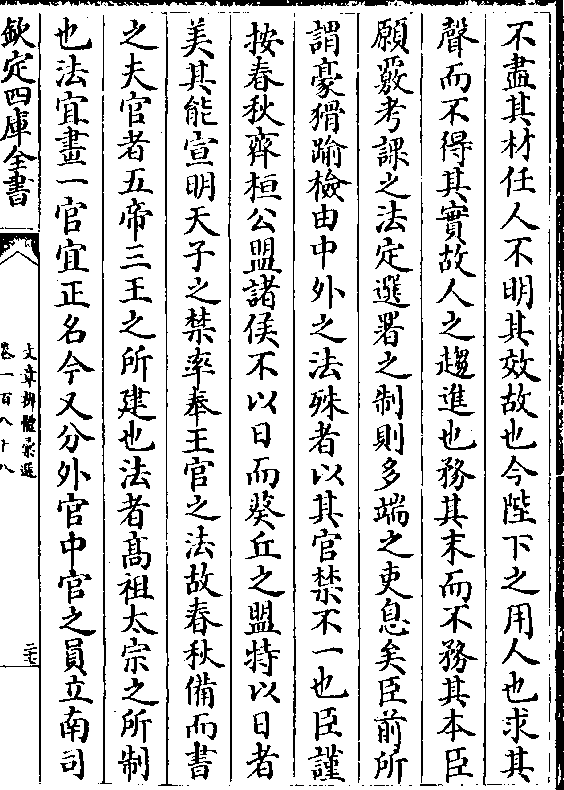 不盡其材任人不明其效故也今陛下之用人也求其
聲而不得其實故人之趨進也務其末而不務其本臣
願覈考課之法定選署之制則多端之吏息矣臣前所
謂豪猾踰檢由中外之法殊者以其官禁不一也臣謹
按春秋齊桓公盟諸侯不以日而葵丘之盟特以日者
美其能宣明天子之禁率奉王官之法故春秋備而書
之夫官者五帝三王之所建也法者髙祖太宗之所制
也法宜畫一官宜正名今又分外官中官之員立南司
欽定四庫全書
文章辨體彚選
卷一百八十八
二十七